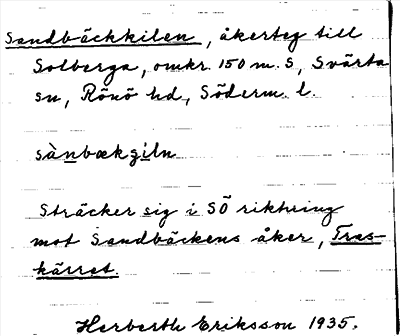 Sandbäckkilen, åkerteg till
Solberga, omkr. 150 m. S, Svärta
sn, Rönö hd, Söderm. l.
sànbækgiln
Sträcker sig i SÖ riktning
mot Sandbäckens åker, Tras-
kärret.
Herberth Eriksson 1935.